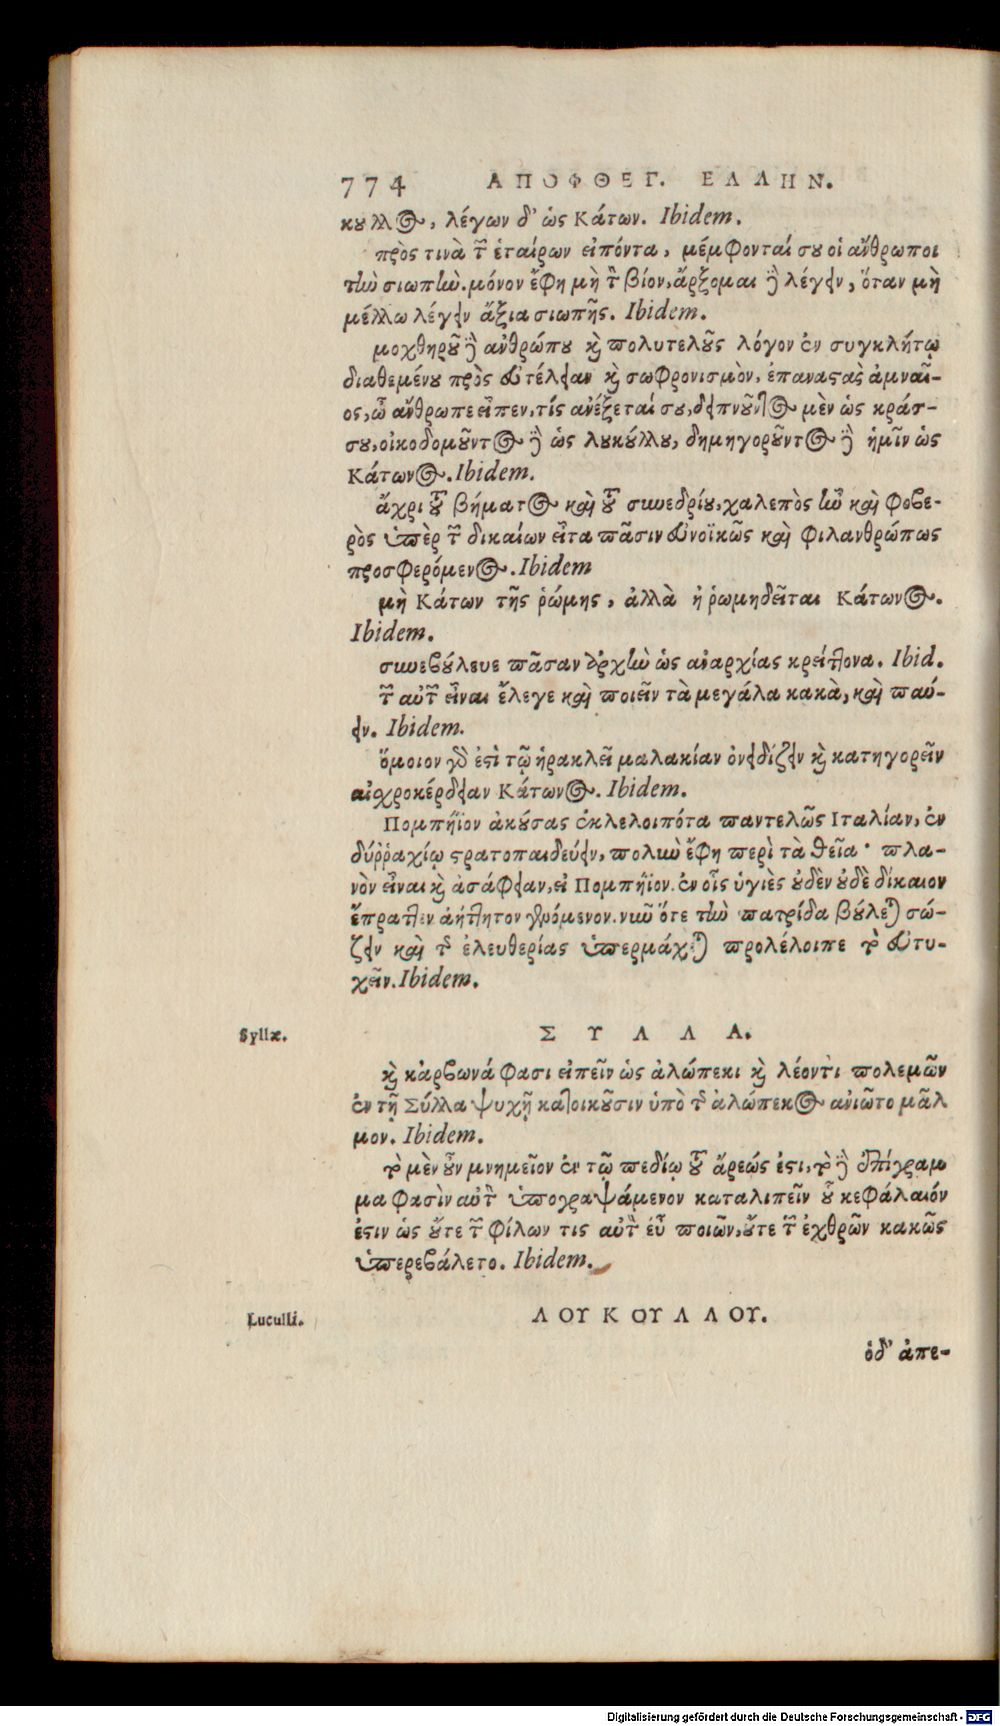 774 ΑΠΟΦΘΕΓ. ΕΛΛΗΝ.
κυλλος, λέγων δ' ὡς Κάτων. Ibidem.
πρὸς τινὰ τῶν ἑταίρων εἰπόντα, μέμφονταί σου οἱ ἄνθρωποι
τὴν σιωπὴν. μόνον ἔφη μὴ τὸν βίον, ἄρξομαι δὲ λέγειν, ὅταν μὴ
μέλλω λέγειν ἄξια σιωπῆς. Ibidem.
μοχθηροῦ δὲ ἀνθρώπου καὶ πολυτελοῦς λόγον ἐν συγκλήτῳ
διαθεμένου πρὸς εὐτέλειαν καὶ σωφρονισμὸν, ἐπαναστὰς ἀμναῖ-
ος, ὦ ἄνθρωπε εἶπεν, τίς ἀνέξεταί σου, δειπνοῦντος μὲν ὡς κράσ-
σου, οἰκοδομοῦντος δὲ ὡς λουκούλλου, δημηγοροῦντος δὲ ἡμῖν ὡς
Κάτωνος. Ibidem.
ἄχρι τοῦ βήματος καὶ τοῦ συνεδρίου, χαλεπὸς ἦν καὶ φοβε-
ρὸς ὑπὲρ τῶν δικαίων εἶτα πᾶσιν εὐνοϊκῶς καὶ φιλανθρώπως
προσφερόμενος. Ibidem
μὴ Κάτων τῆς ῥώμης, ἀλλὰ ἡ ῥώμη δεῖται Κάτωνος.
Ibidem.
συνεβούλευε πᾶσαν ἀρχὴν ὡς ἀναρχίας κρείττονα. Ibid.
τῶν αὐτῶν εἶναι ἔλεγε καὶ ποιεῖν τὰ μεγάλα κακὰ, καὶ παύ-
ειν. Ibidem.
ὅμοιον γάρ ἐστὶ τῷ ἡρακλεῖ μαλακίαν ὀνειδίζειν καὶ κατηγορεῖν
αἰσχροκέρδειαν Κάτωνος. Ibidem.
Πομπήϊον ἀκούσας ἐκλελοιπότα παντελῶς Ιταλίαν, ἐν
δύῤῥαχίῳ στρατοπαιδεύειν, πολὺν ἔφη περὶ τὰ θεῖα· πλα-
νὸν εἶναι καὶ ἀσάφειαν, εἰ Πομπήϊον. ἐν οἷς ὑγιὲς οὐδὲν οὐδὲ δίκαιον
ἔπραττεν ἀήττητον γενόμενον. νῦν ὅτε τὴν πατρίδα βούλεται σώ-
ζειν καὶ τῆς ἐλευθερίας ὑπερμάχεται προλέλοιπε τὸ εὐτυ-
χεῖν. Ibidem.
Syllæ. ΣΥΛΛΑ.
καὶ κάρβωνά φασι εἰπεῖν ὡς ἀλώπεκι καὶ λέοντι πολεμῶν
ἐν τῇ Σύλλα ψυχῇ κατοικοῦσιν ὑπὸ τῆς ἀλώπεκος ἀνιῶτο μᾶλ
μον. Ibidem.
τὸ μὲν οὖν μνημεῖον ἐν τῷ πεδίῳ τοῦ ἄρεώς ἐστι, τὸ δὲ ἐπίγραμ
μα φασὶν αὐτὸν ὑπογραψάμενον καταλιπεῖν οὗ κεφάλαιόν
ἐστιν ὡς οὔτε τῶν φίλων τις αὐτὸν εὖ ποιῶν, οὔτε τῶν ἐχθρῶν κακῶς
ὑπερεβάλετο. Ibidem.
Luculli. ΛΟΥΚΟΥΛΛΟΥ.
ὁδ' ἀπε-
Digitalisierung gefördert durch die Deutsche Forschungsgemeinschaft - DFG